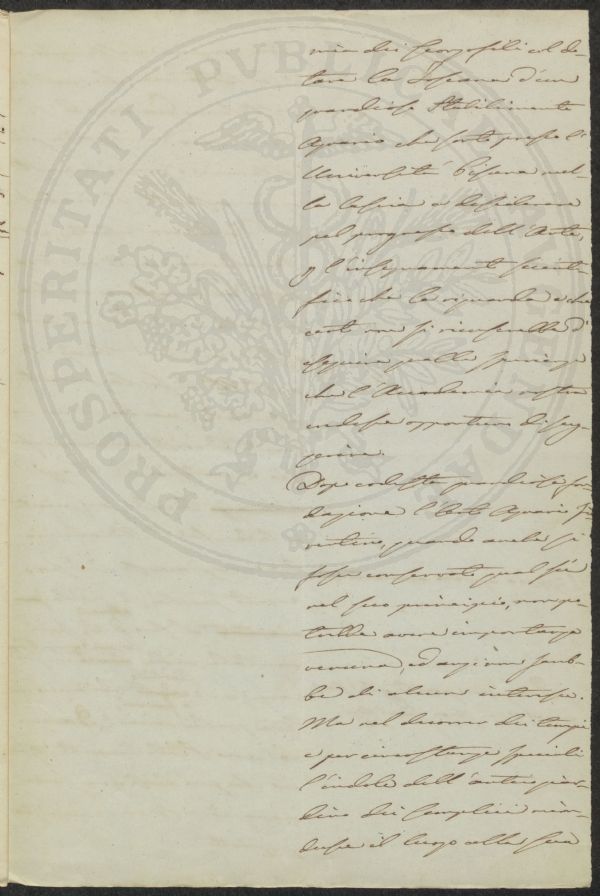 PROSPERITATI PUBLICAE AUGENDAE
mia dei Georgofili col do-
tare la Toscana d'un
grandioso Stabilimento
Agrario che sorto presso l'
Università Pisana nul-
la lascia a desiderare
pel progresso dell'Arte,
l'insegnamento scienti-
fico che la riguarda e che
certo non si ricuserebbe d'
eseguire quelle sperienze
che l'Accademia nostra
credesse opportuno di sug-
gerire.
Dopo codesta grandiosa fon-
dazione l'Orto Agrario Fio-
rentino, quando anche si
fosse conservato qual fù
nel suo principio, non po-
trebbe avere importanza
veruna, ed anzi non sareb-
be di alcun interesse.
Ma nel decorrer dei tempi
e per circostanze speciali
l'indole dell'antico giar-
dino dei Semplici
il luogo alla sua